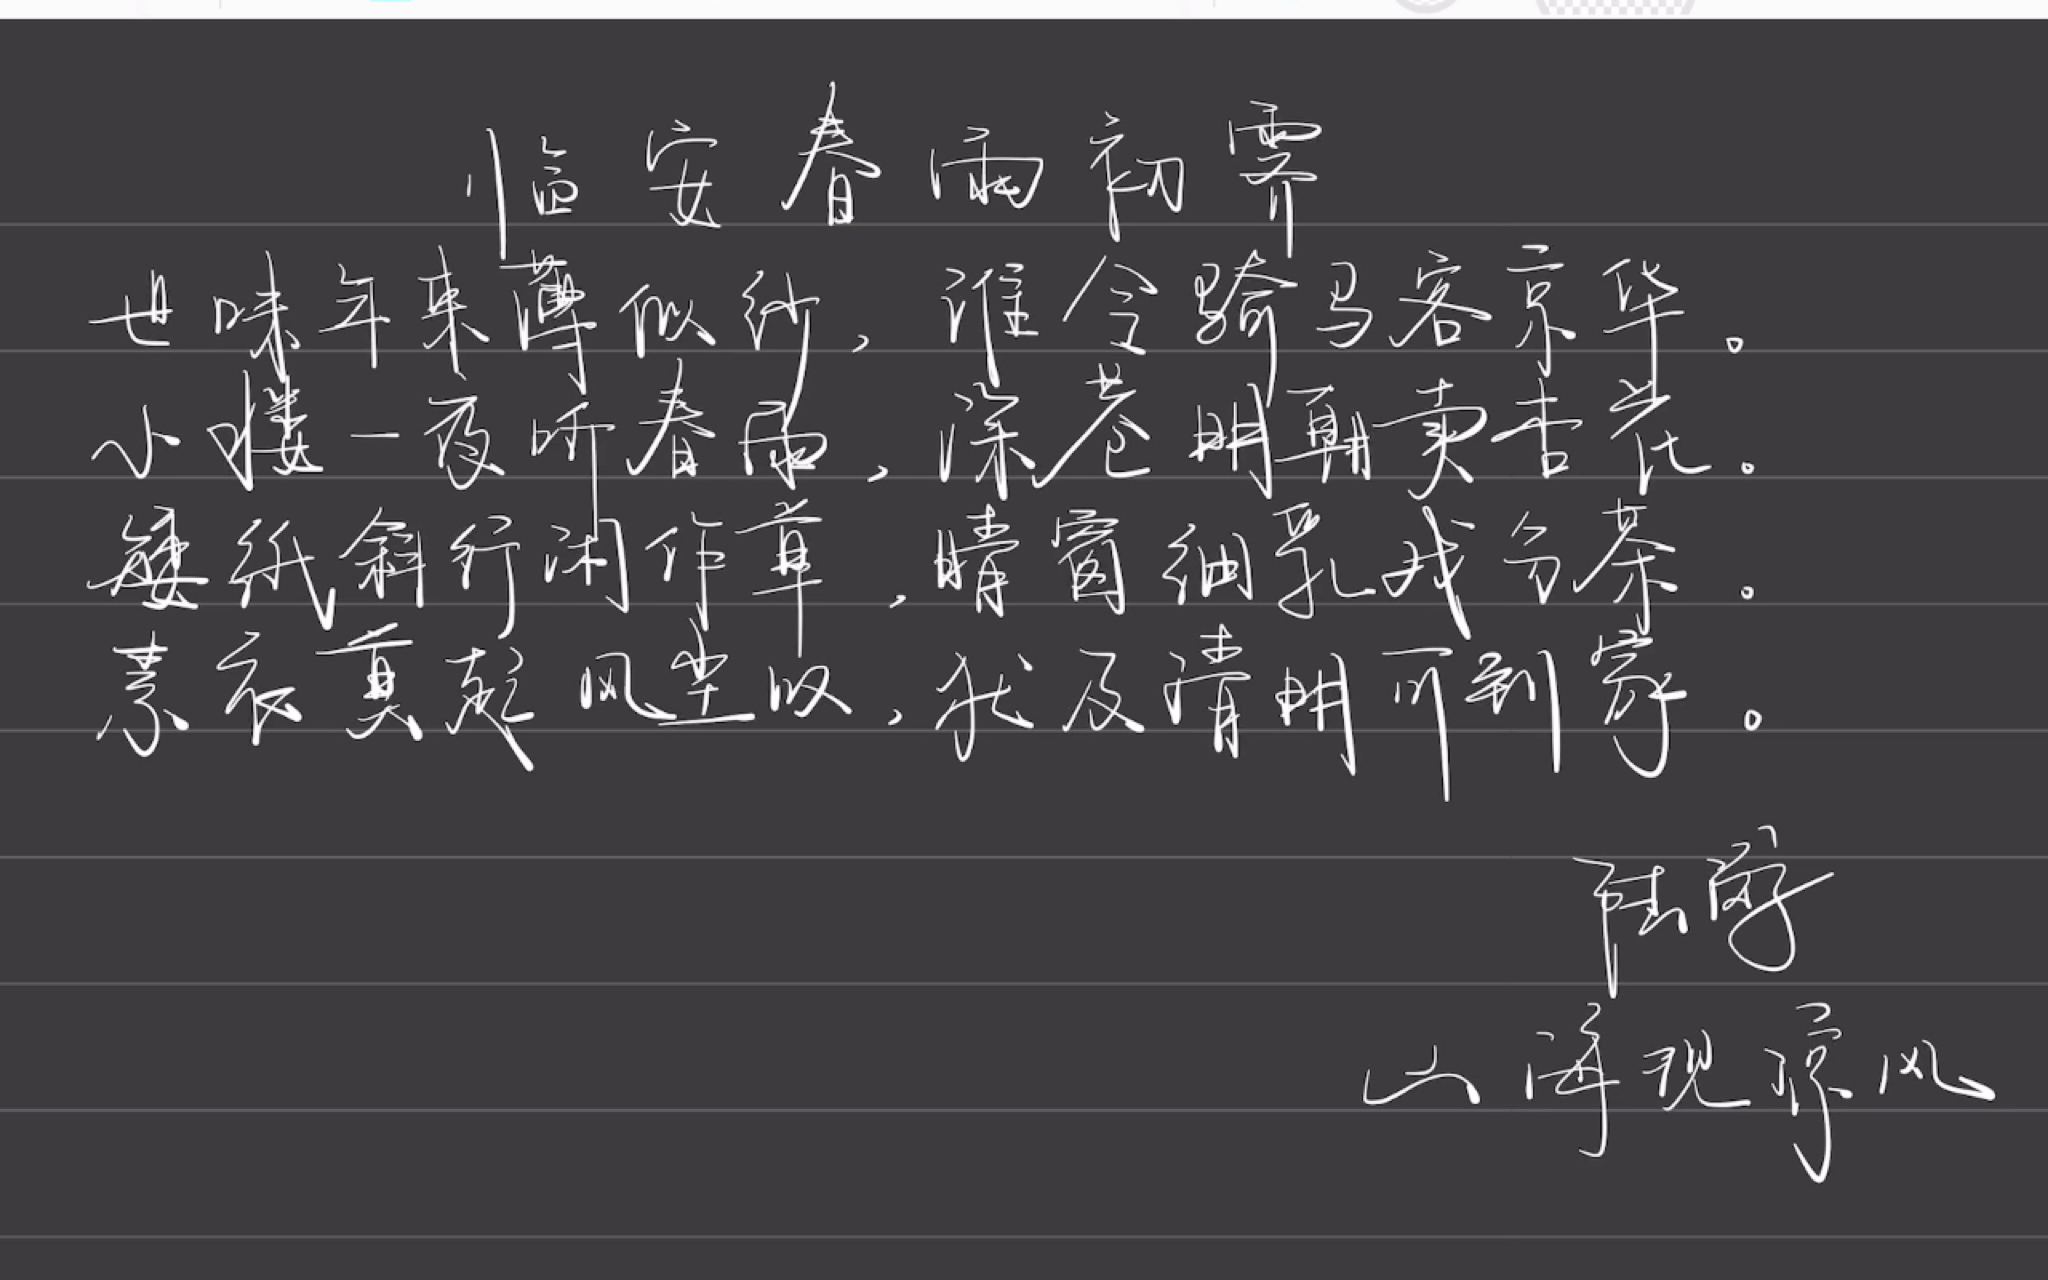 临安春雨初霁
世味年来薄似纱，谁令骑马客京华。
小楼一夜听春雨，深巷明朝卖杏花。
矮纸斜行闲作草，晴窗细乳戏分茶。
素衣莫起风尘叹，犹及清明可到家。
陆游
山海观凉风